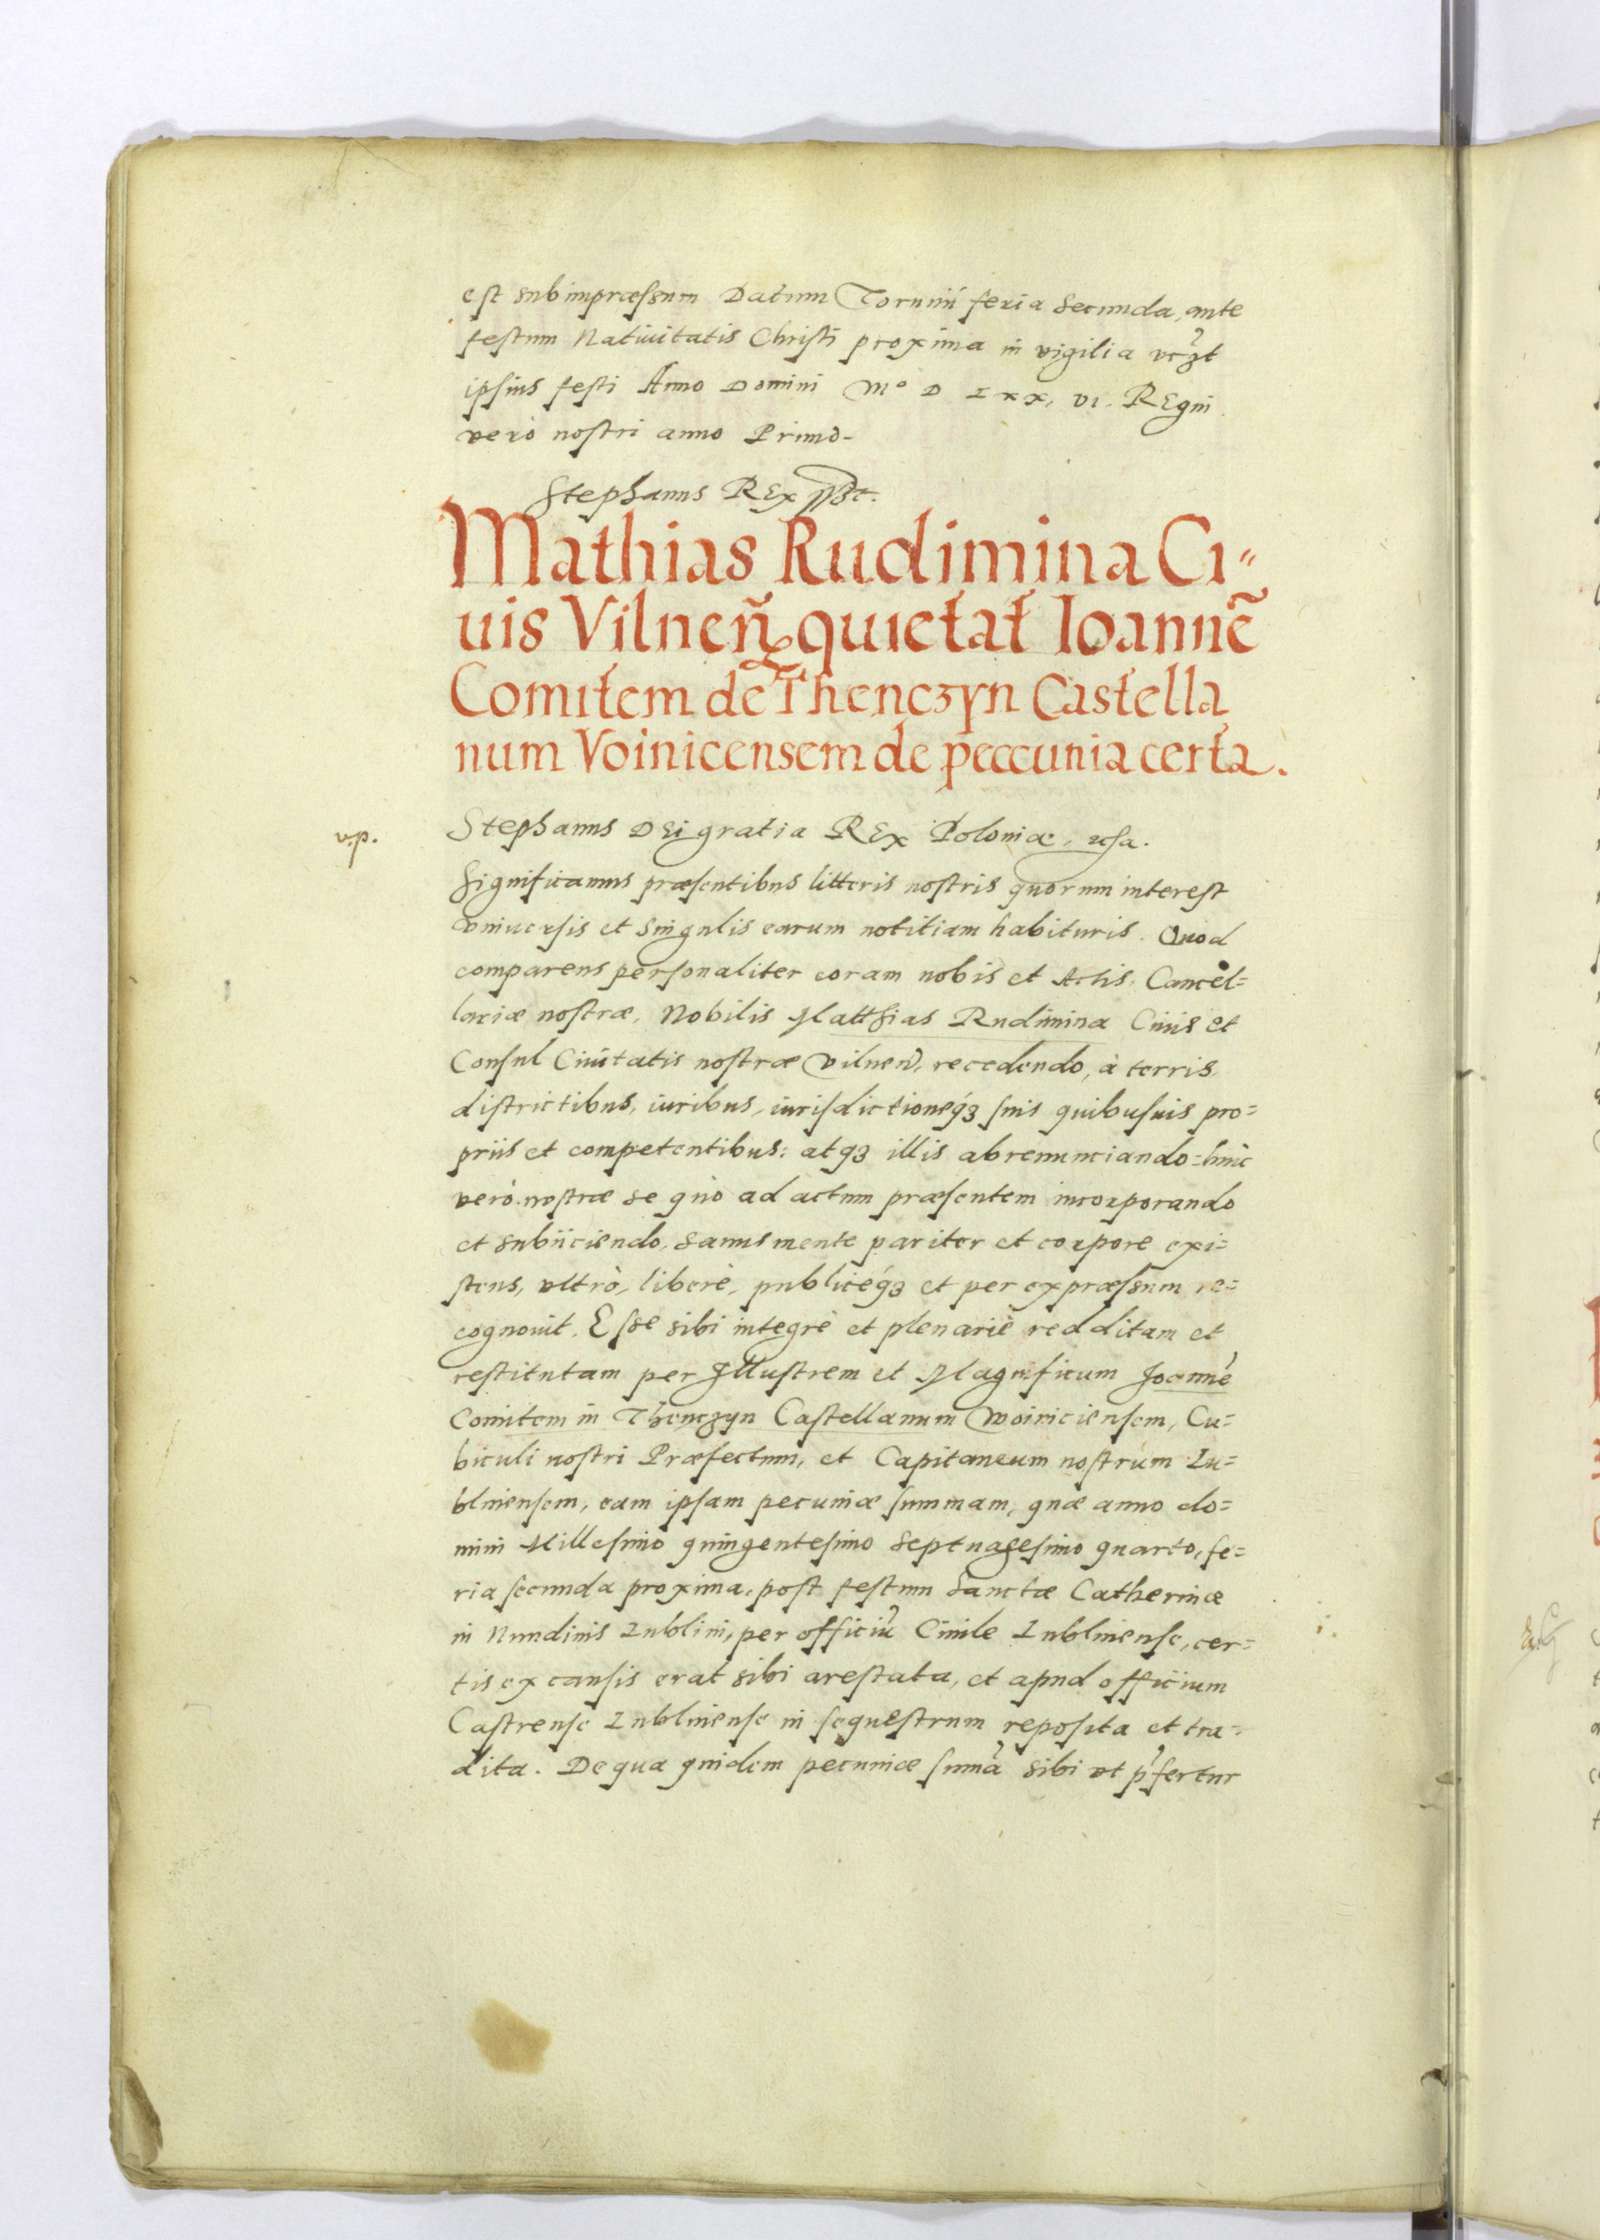 est subimpræssum Datum Torunii feria secunda, ante
festum Natiuitatis Christi proxima in vigilia vczt
ipsius festi Anno Domini Mº D LXX, VI. Regni
verò nostri anno Primo-
Stephanus Rex sst.
Mathias Rudimina Ci-
uis Vilneñ quietat Ioannẽ
Comitem de Thenczyn Castella
num Voinicensem de peccunia certa.
v.p.
Stephanus Dei gratia Rex Poloniæ, etc̃a.
Significamus præsentibus litteris nostris quorum interest
vniuersis et singulis earum notitiam habituris. Quod
comparens personaliter coram nobis et Actis Cancel=
lariæ nostræ, Nobilis Matthias Rudimina Ciuis et
Consul Ciuitatis nostræ Vilneñ, recedendo, à terris,
districtibus, iuribus, iurisdictioneq́ꝫ suis quibusuis pro=
priis et competentibus: atqꝫ illis abrenunciando=huic
verò nostræ se quò ad actum præsentem incorporando
et subiiciendo, sanus mente pariter et corpore exi=
stens, vltrò, liberè, publiceq́ꝫ et per expræssum re=
cognouit. Esse sibi integrè et plenariè redditam et
restitutam per Illustrem et Magnificum Joannẽ
Comitem in Thenczyn Castellanum Woiniciensem, Cu=
biculi nostri Præfectum, et Capitaneum nostrum Lu=
blinensem, eam ipsam pecuniæ summam, quæ anno do=
mini Millesimo quingentesimo septuagesimo quarto, fe=
ria secunda proxima, post festum Sanctæ Catherinæ
in Nundinis Lublini, per officiũ Ciuile Lublinense, cer=
tis ex causis erat sibi arestata, et apud officium
Castrense Lublinense in sequestrum reposita et tra=
dita. De qua quidem pecuniæ sum̃a sibi vt p̃fertur